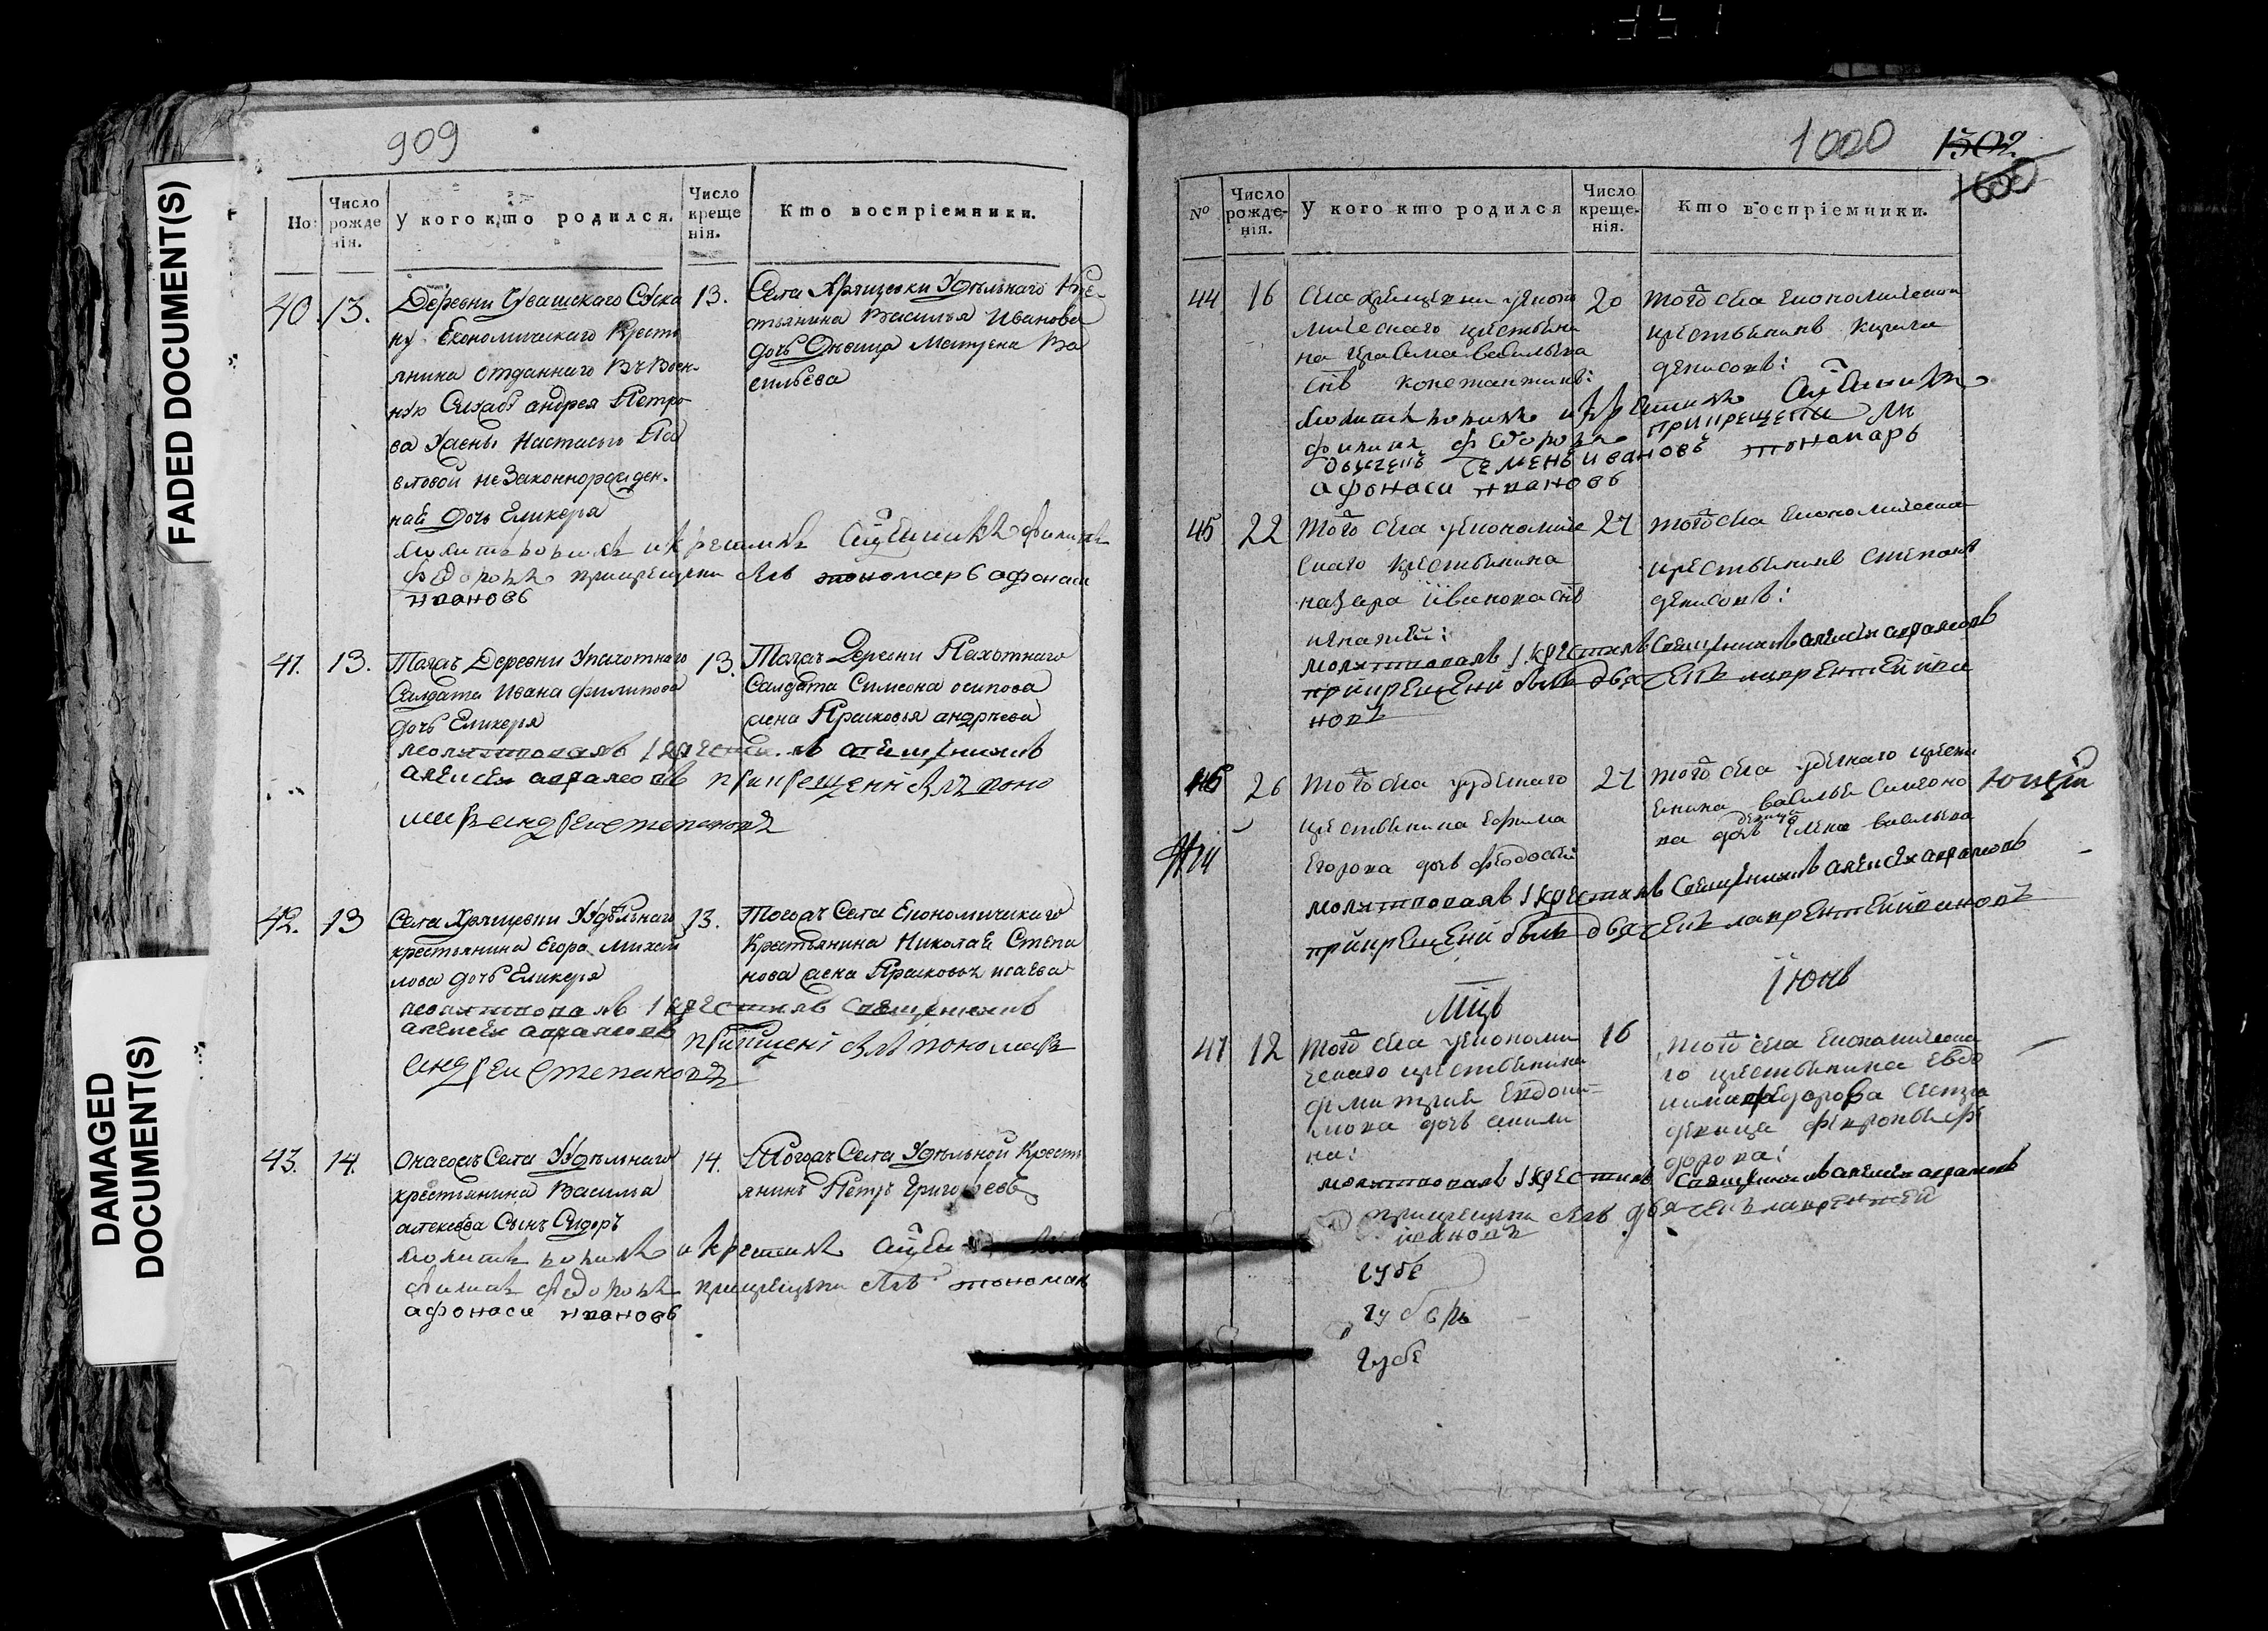 FADED DOCUMENT(S)
DAMAGED
DOCUMENT(S)
909
Но:
Число рожденія.
У кого кто родился.
Число крещенія.
Кто воспріемники.
40. 13.
Деревни Чувашскаго Суска
ну Економическаго Кресть
янина отданнаго въ Воен-
ную Андрея Петро
ва Жены Настасьи Па
вловой незаконнорожден-
ная дочь Гликерія
13.
Села Хрящевки Удѣльнаго Кре-
стьянина Василья Иванова
дочь Девица Матрена Ва
сильева
Молитвовалъ и крестилъ Священникъ Филипъ
Федоровъ прикрещени былъ пономарь афонаси
ивановъ
41. 13.
Тогожъ Деревни
Салдата Ивана Филипова
дочь Гликерія
13.
Тогожъ Деревни Пахотнаго
Салдата Симеона осипова
жена Прасковья андрѣева
молитвовалъ і крестилъ священникъ
алексѣи авраамовъ прикрещенні былъ поно
марь андреи степановъ
42. 13
Села Хрящевки Удѣльнаго
крестьянина Егора Михаи
лова дочь Гликерія
13.
Тогожъ Села Економическаго
Крестьянина Николая Степа
нова жена Прасковья исаева
молитвовалъ і крестилъ священникъ
алексѣи авраамовъ при крещені былъ пономарь
андреи Степановъ
43. 14.
Онагожъ Села Удѣльнаго
крестьянина Василья
алексѣева Сынъ Сидоръ
14.
Тогожъ Села Удѣльной Кресть
янинъ Петръ Григорьевъ
Молитвовалъ и крестилъ
Филипъ Федоровъ прикрещени былъ пономарь
афонаси ивановъ
1000 1502
600
№
Число рожденія.
У кого кто родился
Число крещенія.
Кто воспріемники.
44 16
Села Хрящевки Економи
ческаго крестьяни
на Герасима васильева
снъ константинъ:
20
того села економической
крестьянинъ кирила
денисовъ:
Молитвовалъ и крестилъ Священникъ
филипъ федоровъ прикрещени былъ
дьячекъ Семенъ ивановъ пономарь
афонаси ивановъ
45 22
того села економиче
скаго крестьянина
назара іванова снъ
игнатей:
27
того села економической
крестьянинъ степанъ
денисовъ:
молитвовалъ і крестилъ Священникъ алексѣи авраамовъ
прикрещени былъ дьячекъ лаврентей ива
новъ
46 26
того села удѣлнаго
крестьянина Ефима
Егорова дочь феодосья
27
того села удѣлнаго кресть
янина василья Симеоно
ва дочь девица Елена васильева
молитвовалъ і крестилъ Священникъ алексѣи авраамовъ
прикрещени былъ дьячекъ лаврентей ивановъ
Мцъ Іюнь
47 12
того села економи
ческаго крестьянина
дмитрия Евдоки
мова дочь акили
на:
16
того села економическа
го крестьянина Евдо
кима федорова сестра
девица февронья фе
дорова:
молитвовалъ і крестилъ Священникъ алексѣи авраамовъ
прикрещени былъ дьячекъ лаврентей
ивановъ
губе
губерь
губе